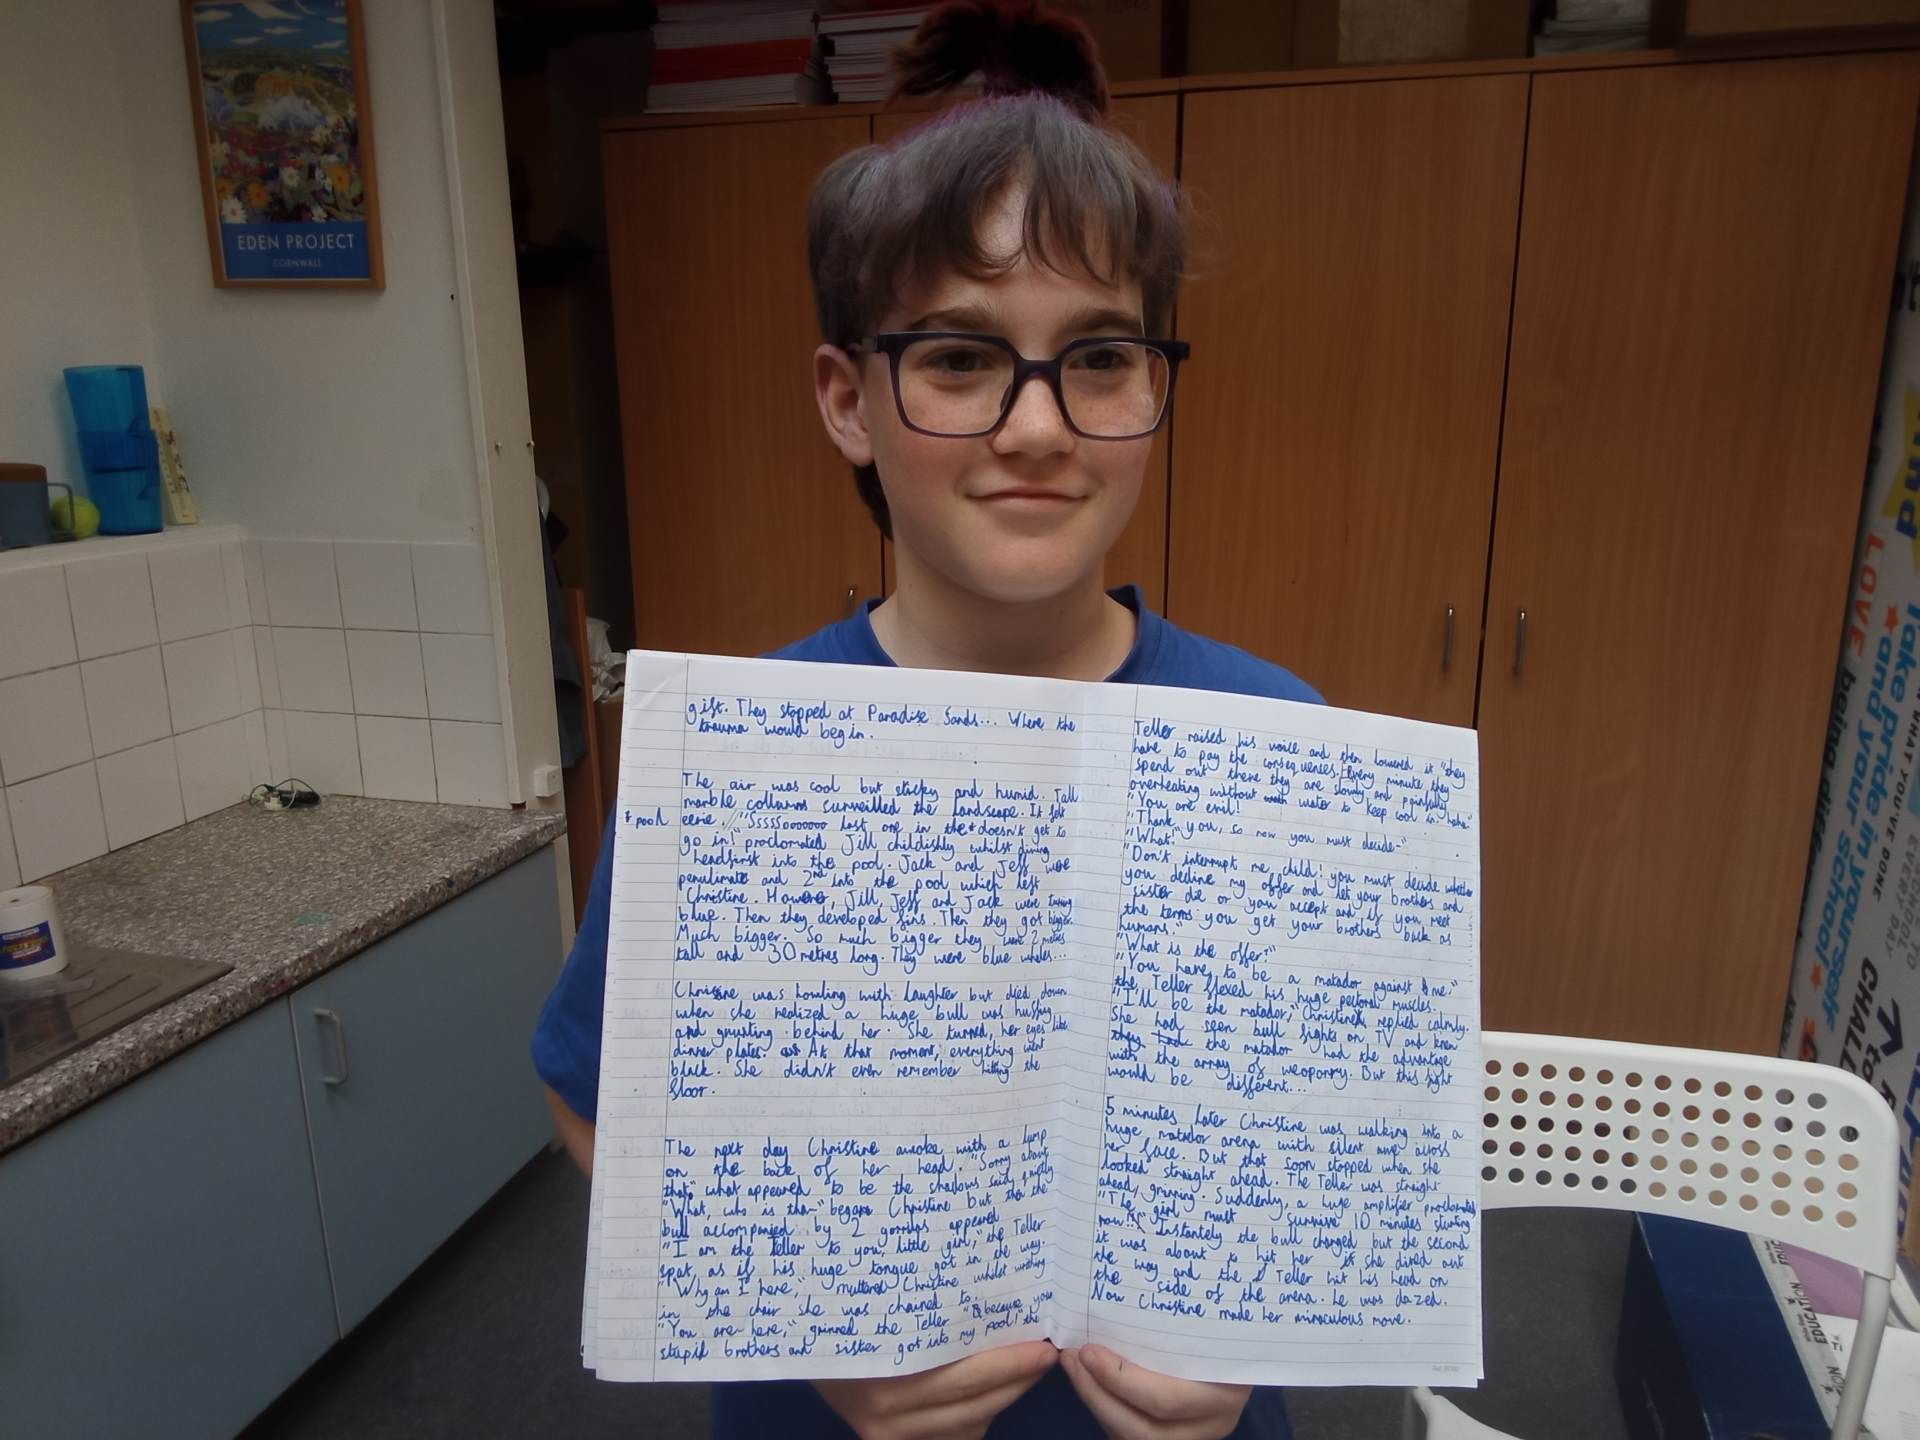 EDEN PROJECT
CORNWALL
gift. They stopped at Paradise Sands... Where the
trauma would begin.
The air was cool but sticky and humid. Tall
marble collumns surveilled the landscape. It felt
eerie. // "Sssssooooooo last one in the doesn't get to
pool
go in!" proclomated Jill childishly whilst diving
headfirst into the pool. Jack and Jeff were
penulimate and 2nd into the pool which left
Christine. However, Jill, Jeff and Jack were turning
blue. Then they developed fins. Then they got bigger.
Much bigger. So much bigger they were 2 metres
tall and 30 metres long. They were blue whales...
Christine was howling with laughter but died down
when she realized a huge bull was huffing
and grunting behind her. She turned, her eyes like
dinner plates. At that moment, everything went
black. She didn't even remember hitting the
floor.
The next day Christine awoke with a lump
on the back of her head. "Sorry about
that," what appeared to be the shadows said quietly
"What, who is tha-" began Christine but then the
bull accompanied by 2 gorrilas appeared
"I am the Teller to you, little girl," the Teller
spat as if his huge tongue got in the way.
"Why am I here," muttered Christine whilst writhing
in the chair she was chained to.
"You are here," grinned the Teller "because your
stupid brothers and sister got into my pool!" the
Teller raised his voice and then lowered it "they
have to pay the consequenses. Every minute they
spend out there they are slowly and painfully
overheating without water to keep cool in, haha"
"You are evil!
"Thank you, so now you must decide-"
"What!"
"Don't interrupt me, child! you must decide whether
you decline my offer and let your brothers and
sister die or you accept and if you meet
the terms you get your brothers back as
humans."
"What is the offer?"
"You have to be a matador against me."
the Teller flexed his huge pectoral muscles.
"I'll be the matador," Christine replied calmly.
She had seen bull fights on TV and knew
they had the matador had the advantage
with the array of weaponry. But this fight
would be different...
5 minutes later Christine was walking into a
huge matador arena with silent awe across
her face. But that soon stopped when she
looked straight ahead. The Teller was straight
ahead, grinning. Suddenly, a huge amplifier proclomated
"The girl must survive 10 minutes starting
now!!" Instantely the bull charged but the second
it was about to hit her she dived out
the way and the Teller hit his head on
the side of the arena. he was dazed.
Now Christine made her miraculous move.
Take pride in yourself
and your school
LOVE being different
WHAT YOU'VE DONE
EDUCATION